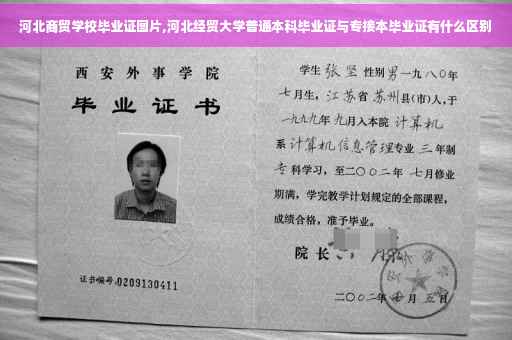 河北商贸学校毕业证图片,河北经贸大学普通本科毕业证与专接本毕业证有什么区别
西安外事学院
毕业证书
证书编号:0209130411
学生张坚性别男一九八〇年
七月生,江苏省苏州县(市)人,于
一九九九年九月入本院计算机
系计算机信息管理专业三年制
专科学习,至二〇〇二年七月修业
期满,学完教学计划规定的全部课程,
成绩合格,准予毕业。
院长
二〇〇二年七月五日